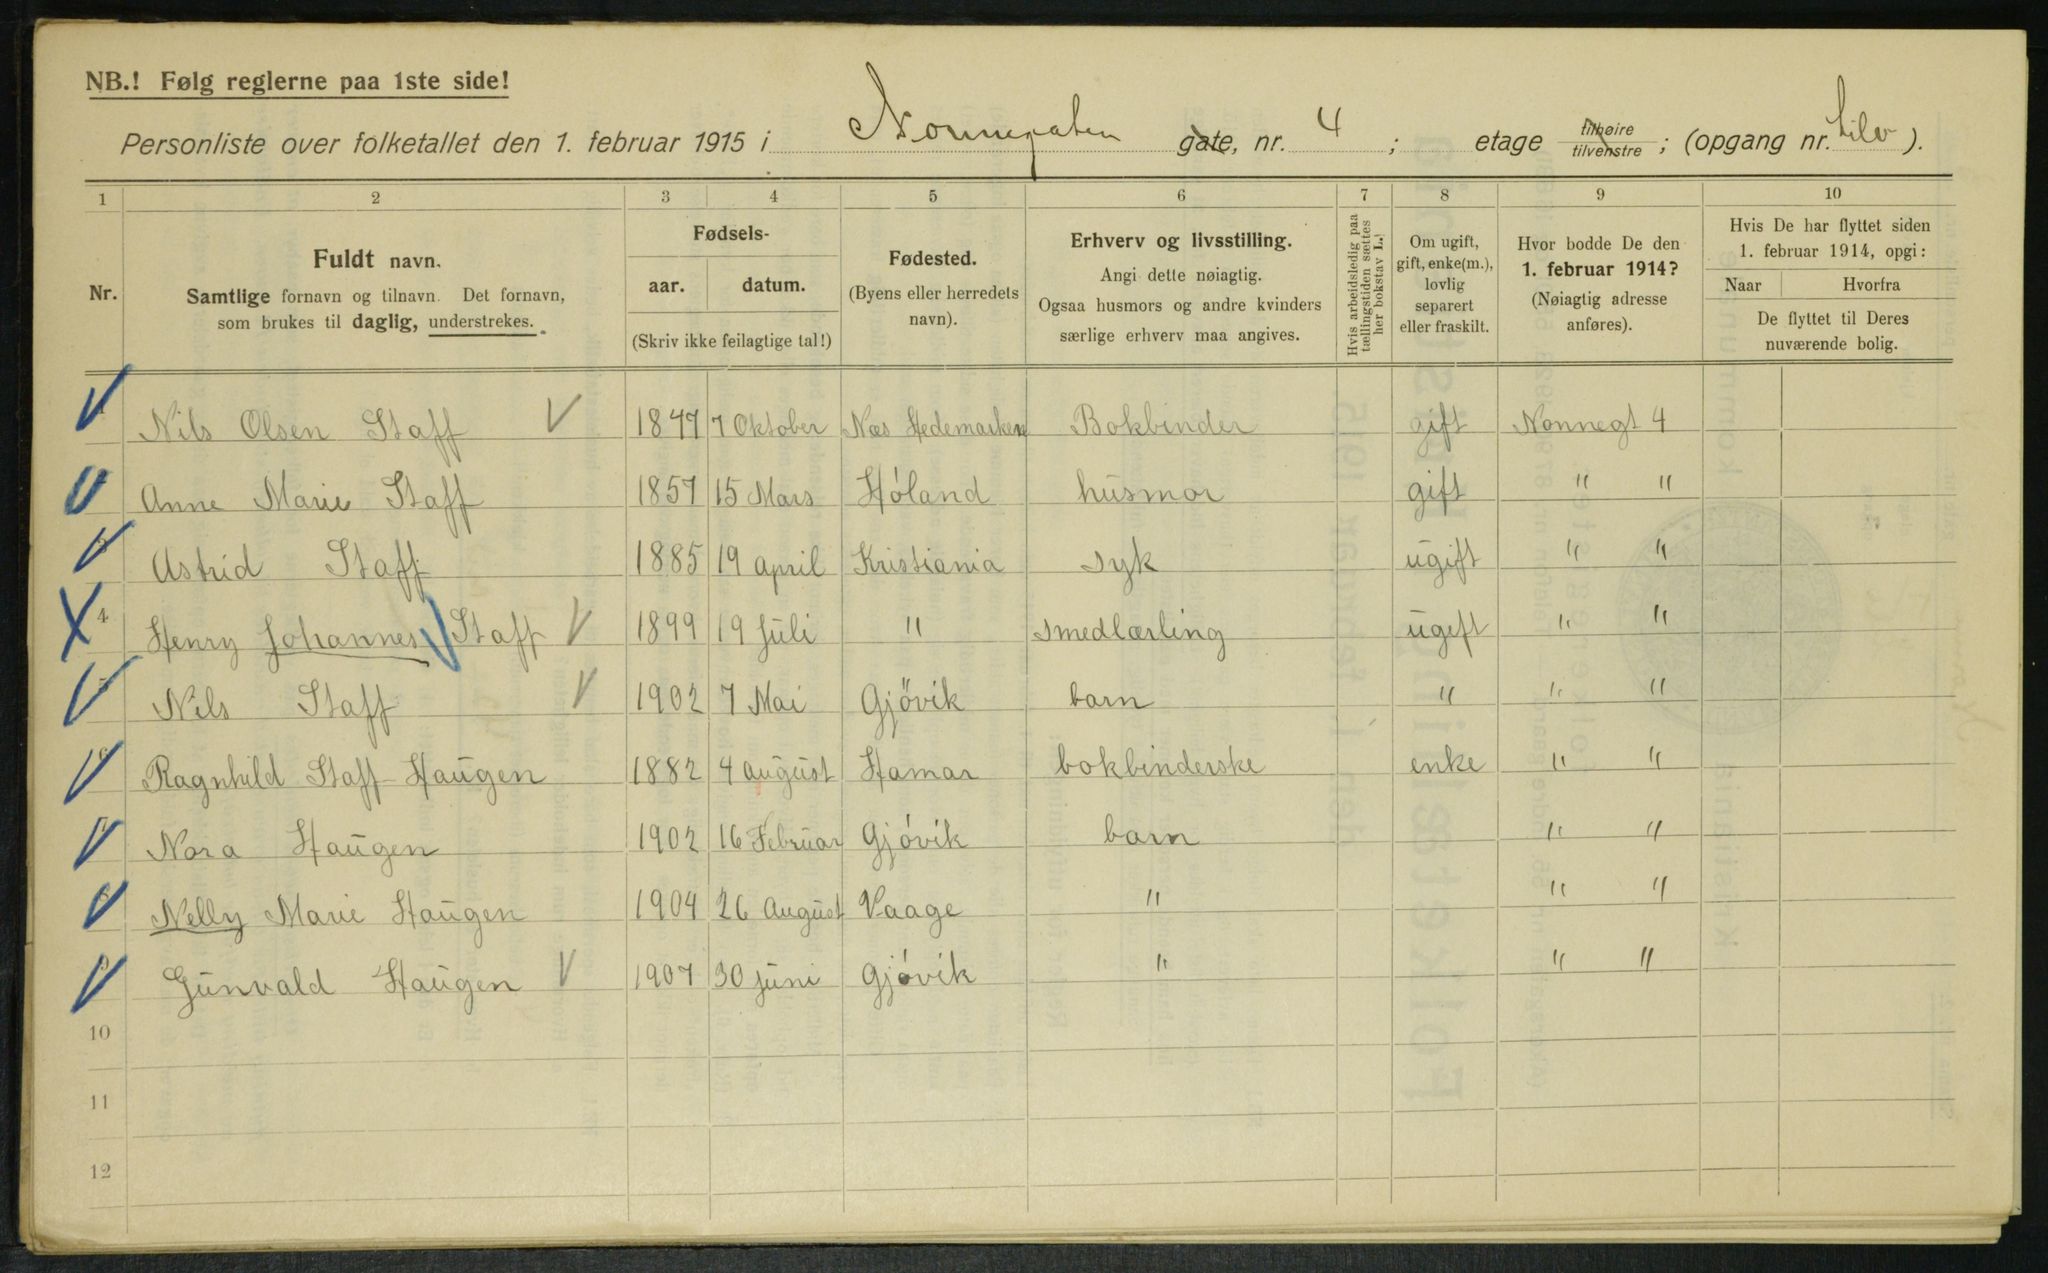 NB.! Følg reglerne paa 1ste side!
Personliste over folketallet den 1. februar 1915 i Nonnegaten gate, nr. 4 ; etage tilhøire tilvenstre ; (opgang nr. tilv ).
1 2 3 4 5 6 7 8 9 10
Nr.
Fuldt navn.
Samtlige fornavn og tilnavn. Det fornavn,
som brukes til daglig, understrekes.
Fødsels-
aar. datum.
(Skriv ikke feilagtige tal!)
Fødested.
(Byens eller herredets
navn).
Erhverv og livsstilling.
Angi dette nøiagtig.
Ogsaa husmors og andre kvinders
særlige erhverv maa angives.
Hvis arbeidsledig paa
tællingstiden sættes
her bokstav L.
Om ugift,
gift, enke(m.),
lovlig
separert
eller fraskilt.
Hvor bodde De den
1. februar 1914?
(Nøiagtig adresse
anføres).
Hvis De har flyttet siden
1. februar 1914, opgi:
Naar Hvorfra
De flyttet til Deres
nuværende bolig.
Nils Olsen Staff 1847 7 Oktober Næs Hedemarken Bokbinder gift Nonnegt 4
Anne Marie Staff 1857 15 Mars Höland husmor gift " "
3 Astrid Staff 1885 19 april Kristiania syk ugift " "
4 Henry Johannes Staff 1899 19 Juli " smedlærling ugift " "
5 Nils Staff 1902 7 Mai Gjövik barn " " "
6 Ragnhild Staff Haugen 1882 4 august Hamar bokbinderske enke " "
7 Nora Haugen 1902 16 Februar Gjóvik barn " "
8 Nelly Marie Haugen 1904 26 August Vaage " " "
9 Gunvald Haugen 1907 30 juni Gjóvik " " "
10
11
12